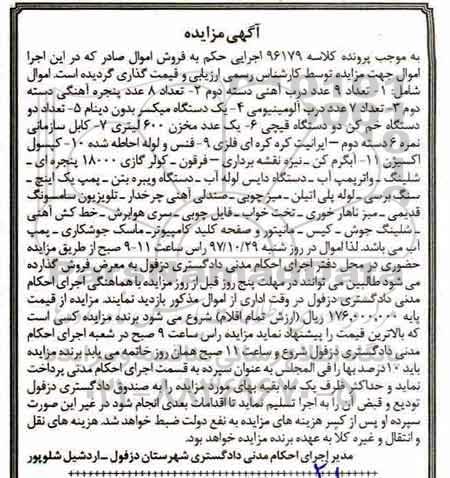 آگهی مزایده
به موجب پرونده کلاسه ۹۶۱۷۹ اجرایی حکم به فروش اموال صادر که در این اجرا
اموال جهت مزایده توسط کارشناس رسمی ارزیابی و قیمت گذاری گردیده است. اموال
شامل: ۱- تعداد ۹ عدد درب آهنی دسته دوم ۲- تعداد ۸ عدد پنجره آهنگی دسته
دوم ۳- تعداد ۷ عدد درب آلومینیومی ۴- یک دستگاه میکسر بدون دینام ۵- تعداد دو
دستگاه خم کن دو دستگاه قیچی ۶- یک عدد مخزن ۶۰۰ لیتری ۷- کابل سازمانی
نمره ۶ دسته دوم – ایرانیت کره کره ای فلزی ۹- فنس و لوله احاطه شده ۱۰- کپسول
اکسیژن ۱۱- آبگرم کن - نیزه نقشه برداری – فرقون - کولر گازی ۱۸۰۰۰ پنجره ای -
شلینگ - واترپمپ آب - دستگاه دایس لوله آب - دستگاه ویبره بتن - پمپ یک اینچ -
سنگ برسی - لوله پلی اتیلن - میز چوبی - صندلی آهنی چرخدار - تلویزیون سامسونگ
قدیمی - میز ناهار خوری - تخت خواب - فایل چوبی - سری هوابرش - خط کش آهنی
- شلینگ جوش - کیس - مانیتور و صفحه کلید کامپیوتر - ماسک جوشکاری - پمپ
آب می باشد. لذا اموال در روز شنبه ۹۷/۱۰/۲۹ راس ساعت ۱۱-۹ صبح از طریق مزایده
حضوری در محل دفتر اجرای احکام مدنی دادگستری دزفول به معرض فروش گذارده
می شود طالبین می توانند در مهلت پنج روز قبل از روز مزایده با هماهنگی اجرای احکام
مدنی دادگستری دزفول در وقت اداری از اموال مذکور بازدید نمایند. مزایده از قیمت
پایه ۱۷۶,۰۰۰,۰۰۰ ریال (ارزش تمام اقلام) شروع می شود برنده مزایده کسی است
که بالاترین قیمت را پیشنهاد نماید مزایده راس ساعت ۹ صبح در شعبه اجرای احکام
مدنی دادگستری دزفول شروع و ساعت ۱۱ صبح همان روز خاتمه می یابد برنده مزایده
باید ۱۰ درصد بها را فی المجلس به عنوان سپرده به قسمت اجرای احکام مدنی پرداخت
نماید و حداکثر ظرف یک ماه بقیه بهای مورد مزایده را به صندوق دادگستری دزفول
تودیع و قبض آن را به اجرا تسلیم نماید تا اقدامات بعدی انجام شود در غیر این صورت
سپرده او پس از کسر هزینه های مزایده به نفع دولت ضبط خواهد شد. هزینه های نقل
و انتقال و غیره کلا به عهده برنده مزایده خواهد بود.
مدیر اجرای احکام مدنی دادگستری شهرستان دزفول - اردشیل شلوپور